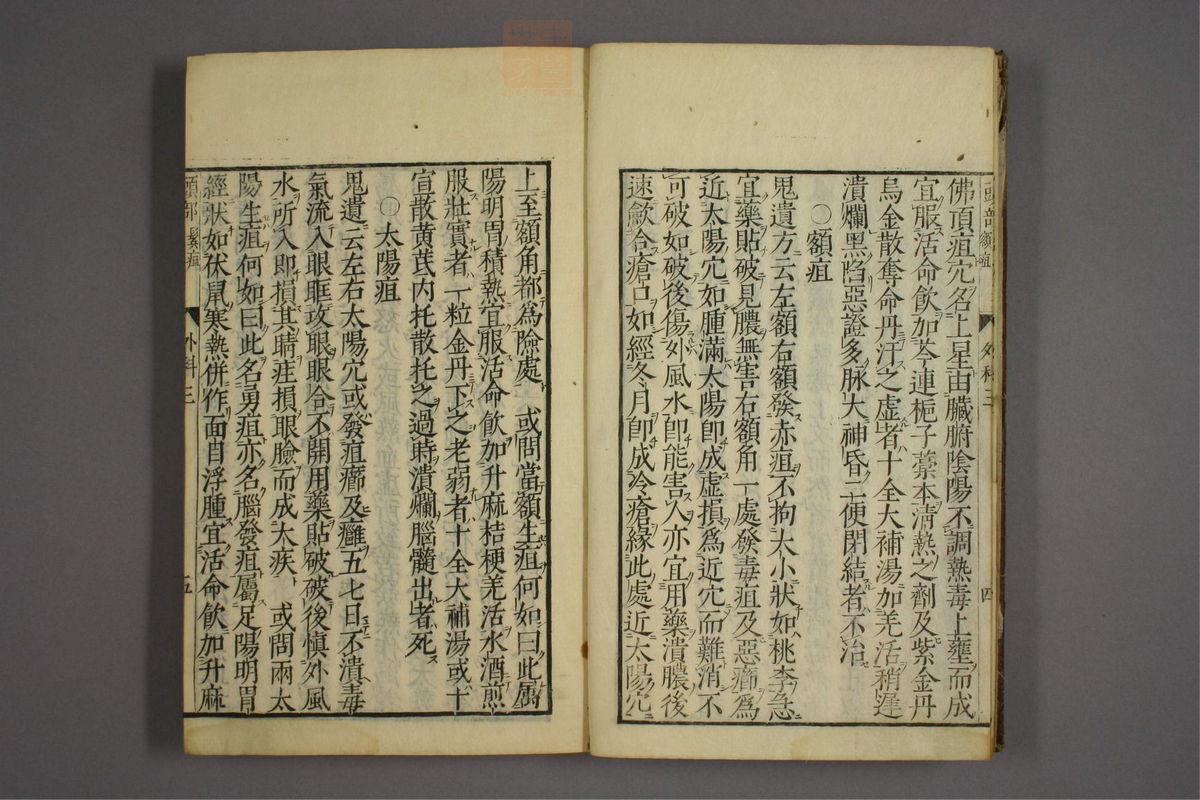 頭部額疽　外科三　四
佛頂疽穴名上星由臓腑陰陽不調熱毒上壅而成
宜服活命飲加芩連梔子藁本清熱之劑及紫金丹
烏金散奪命丹汗之虚者十全大補湯加羌活稍遅
潰爛黑陷惡證多脉大神昏二便閉結者不治
〇額疽
鬼遺方云左額右額發赤疽不拘大小狀如桃李急
宜藥貼破見膿無害右額角一處發毒疽及惡癤爲
近太陽穴如腫滿太陽卽成虚損爲近穴而難消不
可破如破後傷外風水卽能害人亦宜用藥潰膿後
速歛合瘡口如經冬月卽成冷瘡縁此處近太陽穴
上至額角都爲險處　或問當額生疽何如曰此屬
陽明胃積熱宜服活命飲加升麻桔梗羌活水酒煎
服壯實者一粒金丹下之老弱者十全大補湯或十
宣散黄芪内托散托之過時潰爛腦髓出者死
〇太陽疽
鬼遺云左右太陽穴或發疽癤及癰五七日不潰毒
氣流入眼眶攻眼眼合不開用藥貼破破後慎外風
水所入卽損其睛疰損眼瞼而成大疾　或問兩太
陽生疽何如曰此名勇疽亦名腦發疽屬足陽明胃
經狀如伏鼠寒熱併作面目浮腫宜活命飲加升麻
頭部鬢疽　外科三　五